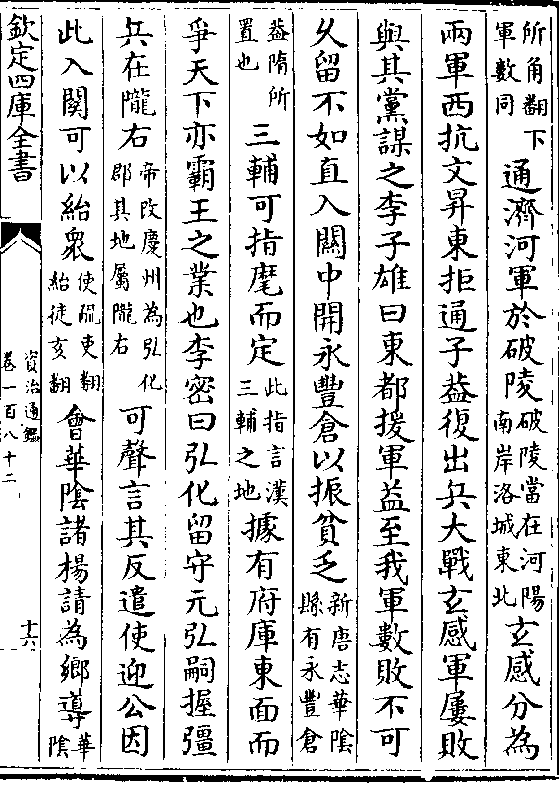 所角翻下軍數同 通濟河軍於破陵 破陵當在河陽南岸洛城東北 玄感分為
兩軍西抗文昇東拒通子葢復出兵大戰玄感軍屢敗
與其黨謀之李子雄曰東都援軍益至我軍數敗不可
久留不如直入關中開永豐倉以振貧乏 新唐志華陰縣有永豐倉
葢隋所置也 三輔可指麾而定 此指言漢三輔之地 據有府庫東面而
爭天下亦霸王之業也李密曰弘化留守元弘嗣握彊
兵在隴右 帝改慶州為弘化郡其地屬隴右 可聲言其反遣使迎公因
此入關可以紿衆 使疏吏翻紿徒亥翻 會華陰諸楊請為鄉導 華陰
欽定四庫全書
資治通鑑
卷一百八十二
十六